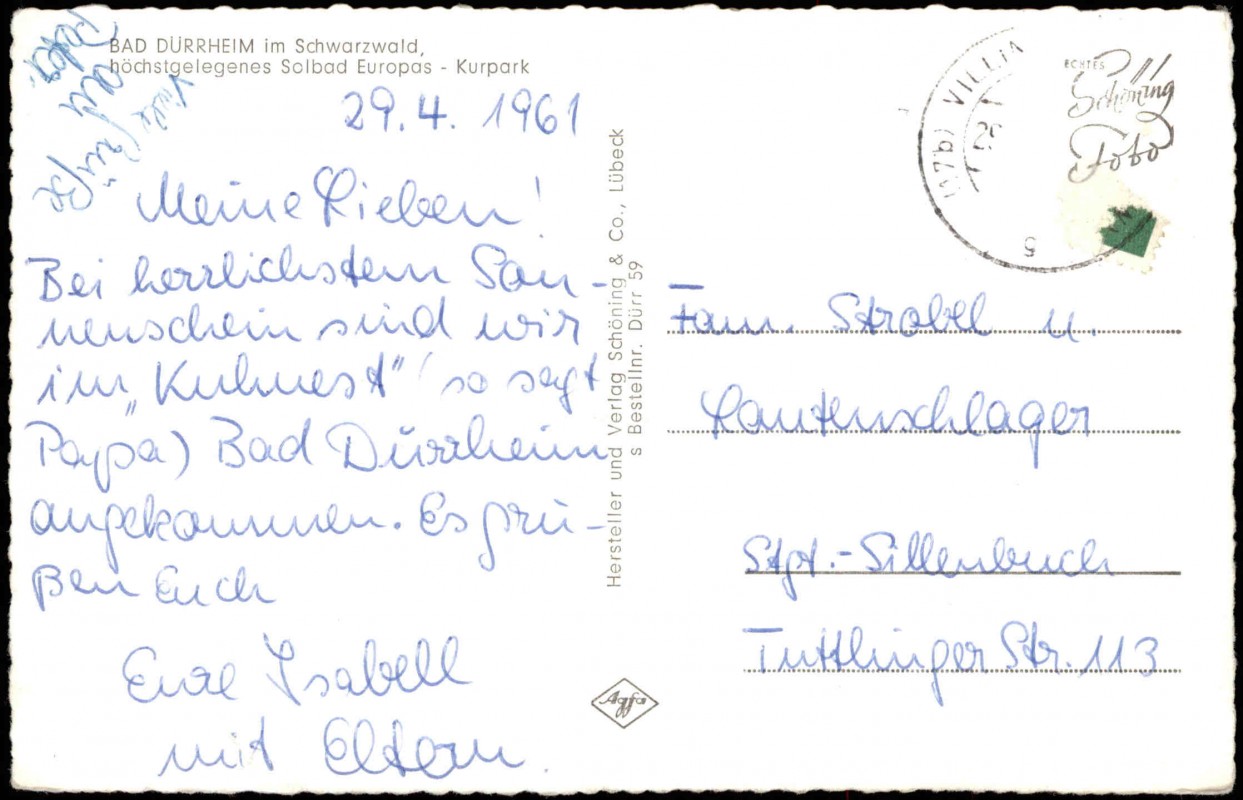 BAD DÜRRHEIM im Schwarzwald,
höchstgelegenes Solbad Europas - Kurpark
Viele
Grüße
29.4. 1961
Meine Lieben!
Bei herrlichstem Son-
nenschein sind wir
im „Kuhnest" (so sagt
Papa) Bad Dürrheim
angekommen. Es grü-
ßen Euch
Eure Isabell
mit Eltern.
Hersteller und Verlag Schöning & Co., Lübeck
s Bestellnr. Dürr 59
Agfa
(17b) VILLIN
29.
ECHTES
Schöning
Foto
Fam. Strobel u.
Lautenschlager
Stgt.-Sillenbuch
Tuttlinger Str. 113